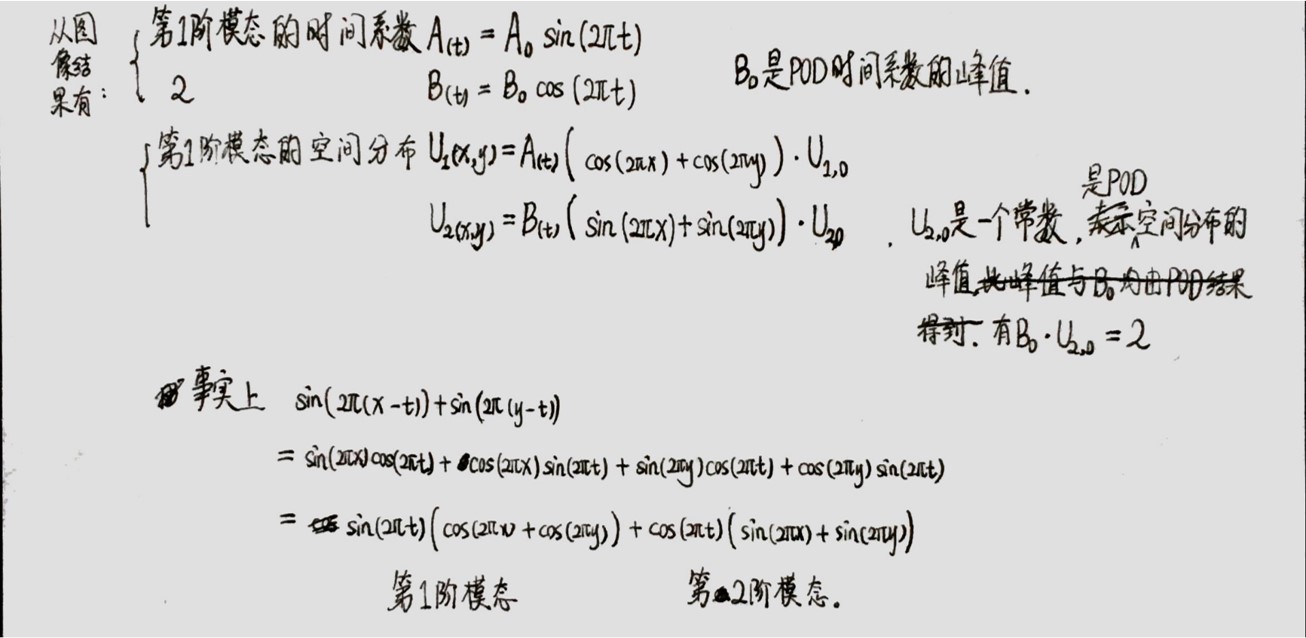 从图像结果有：
第1阶模态的时间系数 A(t) = A₀ sin(2πt)
2 B(t) = B₀ cos(2πt)
B₀是POD时间系数的峰值.
第1阶模态的空间分布 U₁(x,y) = A(t)( cos(2πx) + cos(2πy) ) · U₁,₀
U₂(x,y) = B(t)( sin(2πx) + sin(2πy) ) · U₂,₀
. U₂,₀是一个常数, 表示是POD空间分布的
峰值, 此峰值与B₀均由POD结果
得到. 有B₀·U₂,₀ = 2
事实上 sin(2π(x-t)) + sin(2π(y-t))
= sin(2πx)cos(2πt) + cos(2πx)sin(2πt) + sin(2πy)cos(2πt) + cos(2πy)sin(2πt)
= sin(2πt)(cos(2πx) + cos(2πy)) + cos(2πt)(sin(2πx) + sin(2πy))
第1阶模态 第2阶模态.